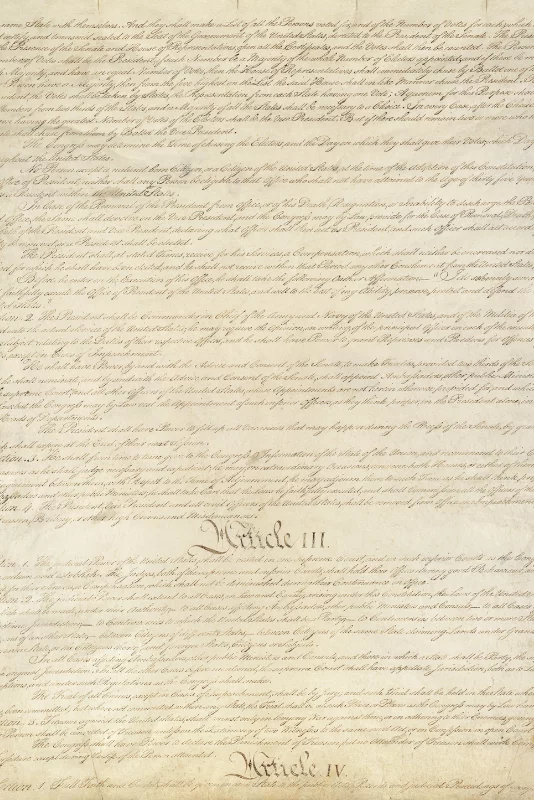 same State with themselves. And they shall make a List of all the Persons voted for, and of the Number of Votes for each; which
certify, and transmit sealed to the Seat of the Government of the United States, directed to the President of the Senate. The
the Presence of the Senate and House of Representatives, open all the Certificates, and the Votes shall then be counted. The Person
Number of Votes shall be the President, if such Number be a Majority of the whole Number of Electors appointed; and if there be
Majority, and have an equal Number of Votes, then the House of Representatives shall immediately chuse by Ballot one of
Person have a Majority, then from the five highest on the List the said House shall in like Manner chuse the President. But
the Votes shall be taken by States, the Representation from each State having one Vote; A quorum for this Purpose shall
Members from two thirds of the States, and a Majority of all the States shall be necessary to a Choice. In every Case, after the Choice
having the greatest Number of Votes of the Electors shall be the Vice President. But if there should remain two or more who
shall chuse from them by Ballot the Vice President.
The Congress may determine the Time of chusing the Electors, and the Day on which they shall give their Votes; which Day
the United States.
No Person except a natural born Citizen, or a Citizen of the United States, at the time of the Adoption of this Constitution
Office of President; neither shall any Person be eligible to that Office who shall not have attained to the Age of thirty five Years
within the United States.
In Case of the Removal of the President from Office, or of his Death, Resignation, or Inability to discharge the
Office, the same shall devolve on the Vice President, and the Congress may by Law provide for the Case of Removal, Death
of the President and Vice President, declaring what Officer shall then act as President, and such Officer shall act
be removed, or a President shall be elected.
The President shall, at stated Times, receive for his Services, a Compensation, which shall neither be encreased nor
for which he shall have been elected, and he shall not receive within that Period any other Emolument from the United States
Before he enter on the Execution of his Office, he shall take the following Oath or Affirmation: — "I do solemnly
faithfully execute the Office of President of the United States, and will to the best of my Ability, preserve, protect and defend the
States."
Section. 2. The President shall be Commander in Chief of the Army and Navy of the United States, and of the Militia of
into the actual Service of the United States; he may require the Opinion, in writing, of the principal Officer in each of the
Subject relating to the Duties of their respective Offices, and he shall have Power to grant Reprieves and Pardons for Offences
except in Cases of Impeachment.
He shall have Power, by and with the Advice and Consent of the Senate, to make Treaties, provided two thirds of the
he shall nominate, and by and with the Advice and Consent of the Senate, shall appoint Ambassadors, other public Ministers
supreme Court, and all other Officers of the United States, whose Appointments are not herein otherwise provided for, and which
but the Congress may by Law vest the Appointment of such inferior Officers, as they think proper, in the President alone, in
Heads of Departments.
The President shall have Power to fill up all Vacancies that may happen during the Recess of the Senate, by
shall expire at the End of their next Session.
Section. 3. He shall from time to time give to the Congress Information of the State of the Union, and recommend to their
Measures as he shall judge necessary and expedient; he may, on extraordinary Occasions, convene both Houses, or either of them
between them, with Respect to the Time of Adjournment, he may adjourn them to such Time as he shall think
Ambassadors and other public Ministers; he shall take Care that the Laws be faithfully executed, and shall Commission all the Officers
Section. 4. The President, Vice President and all civil Officers of the United States, shall be removed from Office on Impeachment
Treason, Bribery, or other high Crimes and Misdemeanors.
Article III.
Section. 1. The judicial Power of the United States, shall be vested in one supreme Court, and in such inferior Courts as the
ordain and establish. The Judges, both of the supreme and inferior Courts, shall hold their Offices during good Behaviour, and
for their Services, a Compensation, which shall not be diminished during their Continuance in Office.
Section. 2. The judicial Power shall extend to all Cases, in Law and Equity, arising under this Constitution, the Laws of the United
which shall be made, under their Authority; — to all Cases affecting Ambassadors, other public Ministers and Consuls; — to all Cases
Jurisdiction; — to Controversies to which the United States shall be a Party; — to Controversies between two or more
of another State; — between Citizens of different States, — between Citizens of the same State claiming Lands under
State, or the Citizens thereof, and foreign States, Citizens or Subjects.
In all Cases affecting Ambassadors, other public Ministers and Consuls, and those in which a State shall be Party, the
original Jurisdiction. In all the other Cases before mentioned, the supreme Court shall have appellate Jurisdiction, both as to
Exceptions, and under such Regulations as the Congress shall make.
The Trial of all Crimes, except in Cases of Impeachment, shall be by Jury; and such Trial shall be held in the State where
been committed; but when not committed within any State, the Trial shall be at such Place or Places as the Congress may by Law
Section. 3. Treason against the United States, shall consist only in levying War against them, or in adhering to their Enemies, giving
Person shall be convicted of Treason unless on the Testimony of two Witnesses to the same overt Act, or on Confession in open
The Congress shall have Power to declare the Punishment of Treason, but no Attainder of Treason shall work
except during the Life of the Person attainted.
Article IV.
Section. 1. Full Faith and Credit shall be given in each State to the public Acts, Records, and judicial Proceedings of